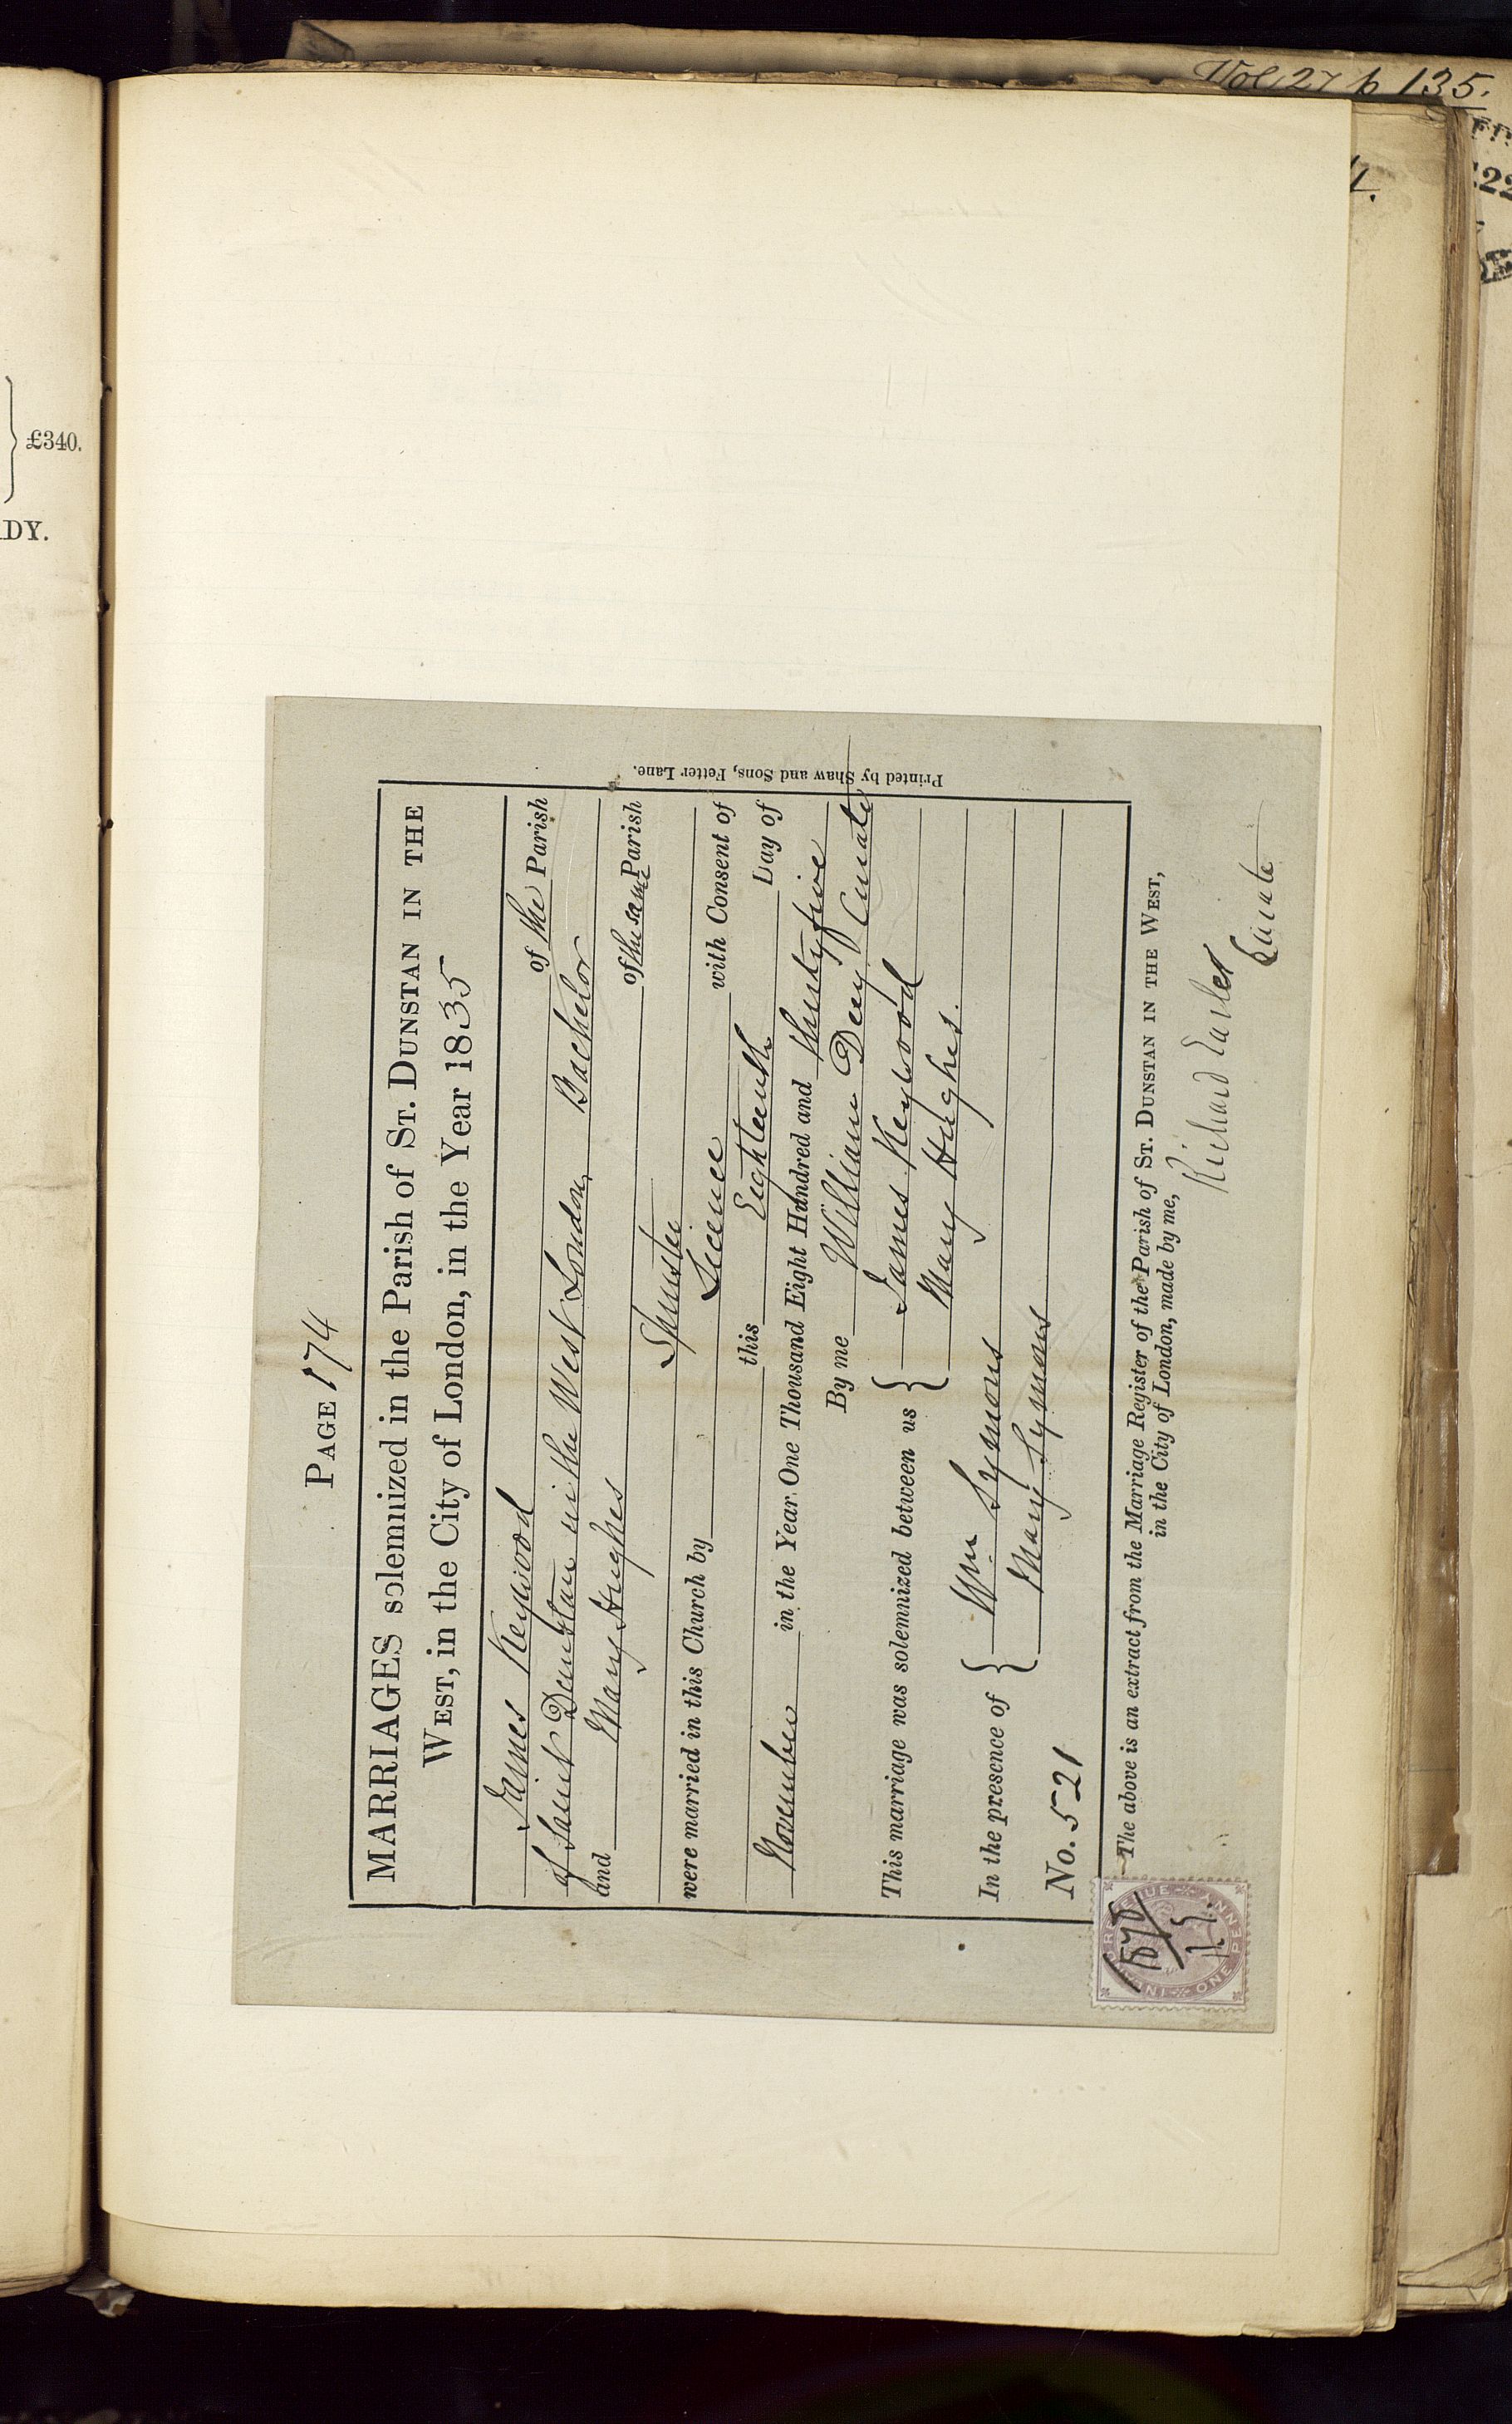 Vol 27 p 135.
£340.
DY.
PAGE 174
MARRIAGES solemnized in the Parish of ST. DUNSTAN IN THE
WEST, in the City of London, in the Year 1835
James Keywood of the Parish
of Saint Dunstan in the West London Bachelor
and Mary Hughes of the same Parish
Spinster
were married in this Church by Licence with Consent of
this Eighteenth Day of
November in the Year One Thousand Eight Hundred and thirty five
By me William Curate
This marriage was solemnized between us { James Keywood
Mary Hughes.
In the presence of { Wm Symons
Mary Symons
No. 521
The above is an extract from the Marriage Register of the Parish of ST. DUNSTAN IN THE WEST,
in the City of London, made by me,
Richard
Curate
Printed by Shaw and Sons, Fetter Lane.
INLAND REVENUE
ONE PENNY